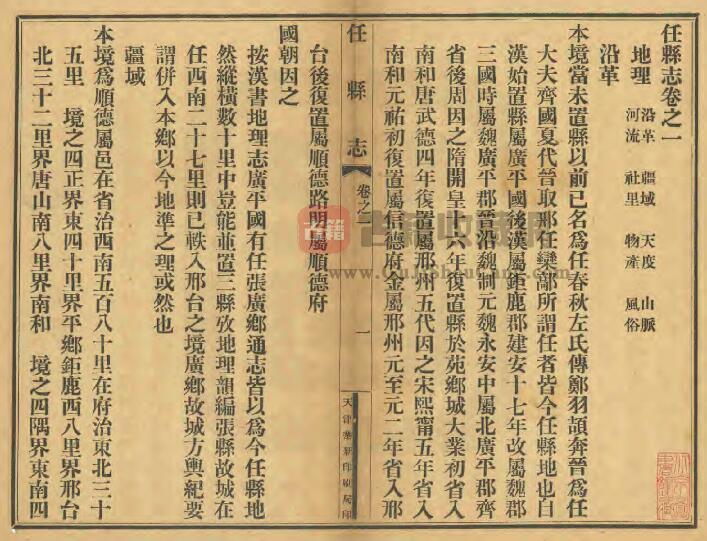 任縣志卷之一
地理 沿革 疆域 天度 山脈
河流 社里 物產 風俗
沿革
本境當未置縣以前已名爲任春秋左氏傳鄭羽頡奔晉爲任
大夫齊國夏代晉取邢任欒鄗所謂任者皆今任縣地也自
漢始置縣屬廣平國後漢屬鉅鹿郡建安十七年改屬魏郡
三國時屬魏廣平郡晉沿魏制元魏永安中屬北廣平郡齊
省後周因之隋開皇十六年復置縣於苑鄉城大業初省入
南和唐武德四年復置屬邢州五代因之宋熙甯五年省入
南和元祐初復置屬信德府金屬邢州元至元二年省入邢
任縣志
卷之一
一
天津華新印刷局印
台後復置屬順德路明屬順德府
國朝因之
按漢書地理志廣平國有任張廣鄉通志皆以爲今任縣地
然縱橫數十里中豈能並置三縣攷地理韻編張縣故城在
任西南二十七里則已軼入邢台之境廣鄉故城方輿紀要
謂併入本鄉以今地準之理或然也
疆域
本境爲順德屬邑在省治西南五百八十里在府治東北三十
五里 境之四正界東四十里界平鄉鉅鹿西八里界邢台
北三十二里界唐山南八里界南和 境之四隅界東南四
古籍